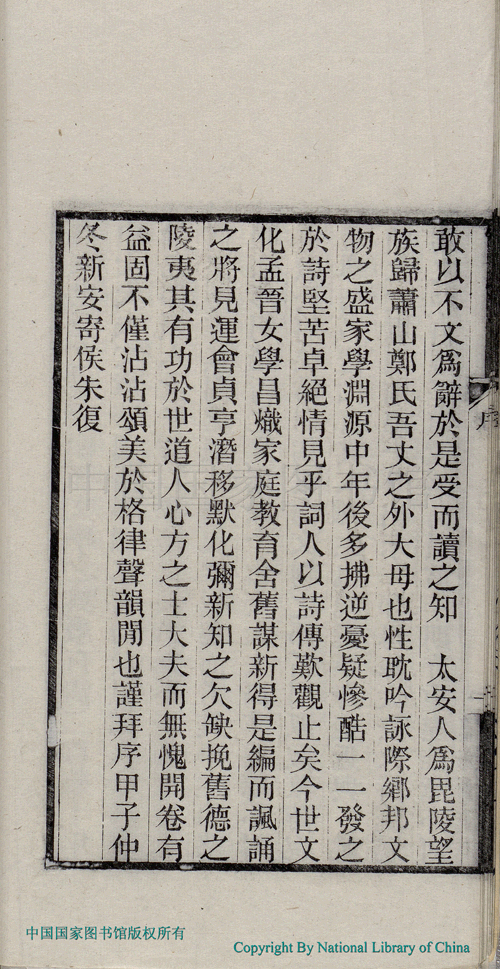 敢以不文爲辭於是受而讀之知　太安人爲毘陵望
族歸蕭山鄭氏吾丈之外大母也性耽吟詠際鄉邦文
物之盛家學淵源中年後多拂逆憂疑慘酷一一發之
於詩堅苦卓絕情見乎詞人以詩傳歎觀止矣今世文
化孟晉女學昌熾家庭教育舍舊謀新得是編而諷誦
之將見運會貞亨潛移默化彌新知之欠缺挽舊德之
陵夷其有功於世道人心方之士大夫而無愧開卷有
益固不僅沾沾頌美於格律聲韻閒也謹拜序甲子仲
冬新安寄侯朱復
序
中国国家图书馆版权所有
Copyright By National Library of China